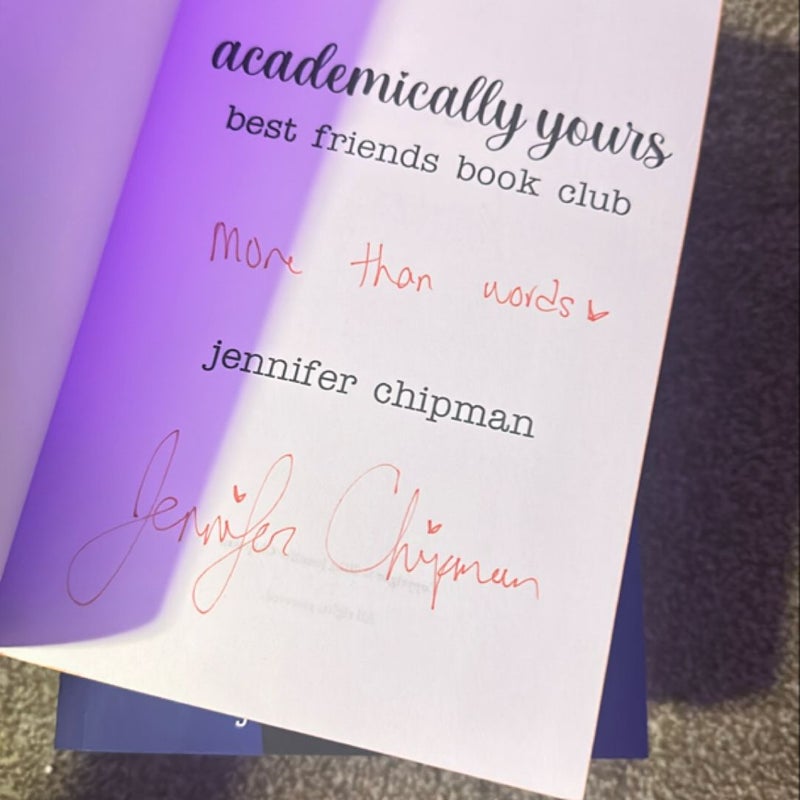 academically yours
best friends book club
More than words
jennifer chipman
Jennifer Chipman
All rights reserved.